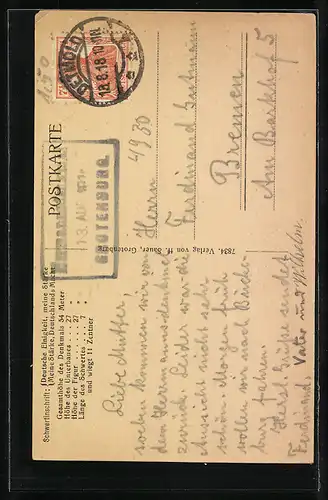 Schwertinschrift: {Deutsche Einigkeit, meine Stärke
{Meine Stärke, Deutschlands Macht.
Gesamthöhe des Denkmals 54 Meter
Höhe des Unterbaues . . 27 "
Höhe der Figur . . . . 27 "
Länge des Schwertes . . 7 "
und wiegt 11 Zentner
POSTKARTE
DETMOLD
18.8.18.10
13. AUG.
GROTENBURG
7834. Verlag von H. Sauer, Grotenburg
4930
Herrn
Ferdinand
Bremen
Am Barkhof 5
Liebe Mutter!
soeben kommen wir von
dem Hermannsdenkmal
zurück. Leider war die
Aussicht nicht sehr
schön. Morgen früh
wollen wir nach Bücke-
burg fahren.
Herzl. Grüße sendet
Ferdinand, Vater und Wilhelm.